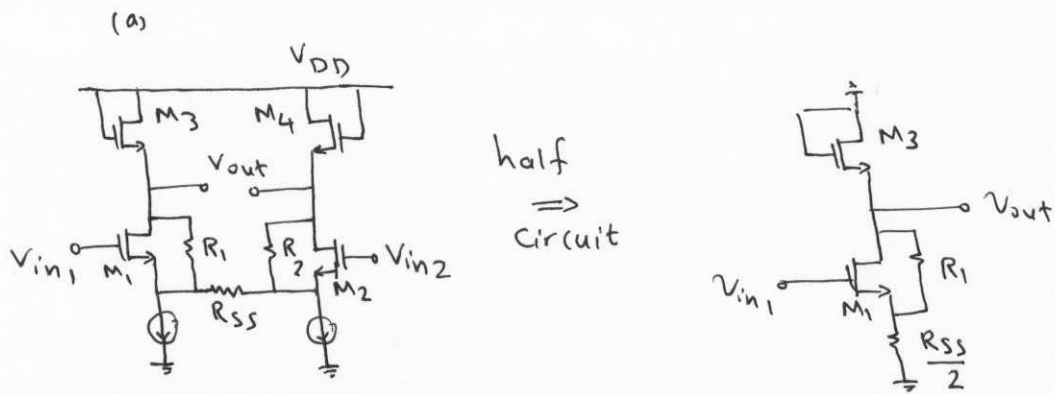 (a)
VDD
M3
M4
Vout
Vin1
M1
R1
R2
M2
Vin2
RSS
half
⇒
Circuit
M3
Vout
Vin1
M1
R1
RSS
2